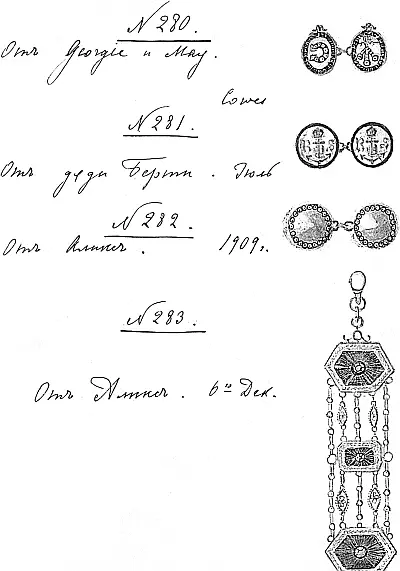 N 280.
Отъ Georgie и May.
Cowes
N 281.
Отъ дяди Берти. Июль
N 282.
Отъ Аликсъ. 1909 г.
N 283.
Отъ Аликсъ. 6го Дек.